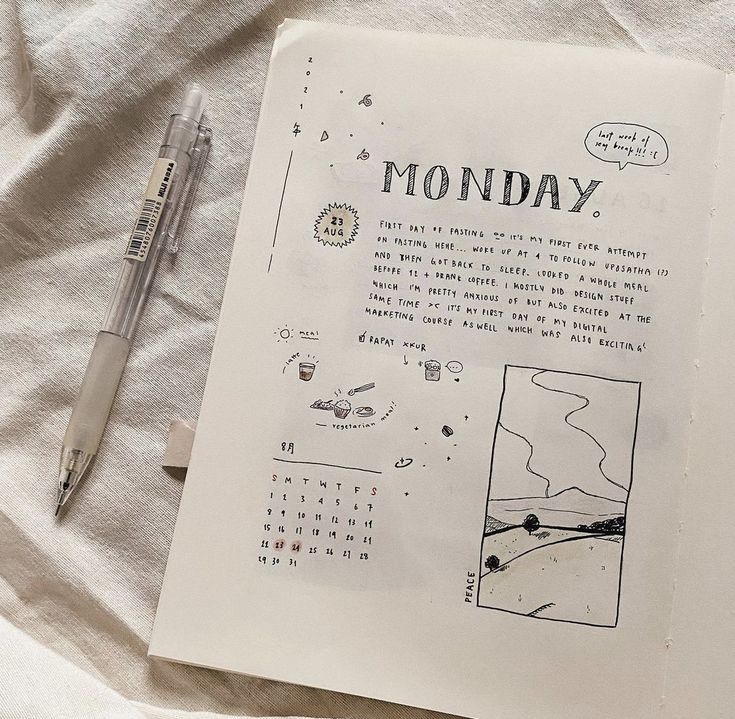 2021年
last week of
sem break!!! :(
MONDAY.
23
AUG
FIRST DAY OF FASTING IT'S MY FIRST EVER ATTEMPT
ON FASTING HEHE... WOKE UP AT 4 TO FOLLOW UPOSATHA (?)
AND THEN GOT BACK TO SLEEP. COOKED A WHOLE MEAL
BEFORE 12 + DRANK COFFEE. I MOSTLY DID DESIGN STUFF
WHICH I'M PRETTY ANXIOUS OF BUT ALSO EXCITED AT THE
SAME TIME >< IT'S MY FIRST DAY OF MY DIGITAL
MARKETING COURSE AS WELL WHICH WAS ALSO EXCITING!
RAPAT XKUR
meal
latte
vegetarian meal!
8月
S M T W T F S
1 2 3 4 5 6 7
8 9 10 11 12 13 14
15 16 17 18 19 20 21
22 23 24 25 26 27 28
29 30 31
PEACE
MUJI